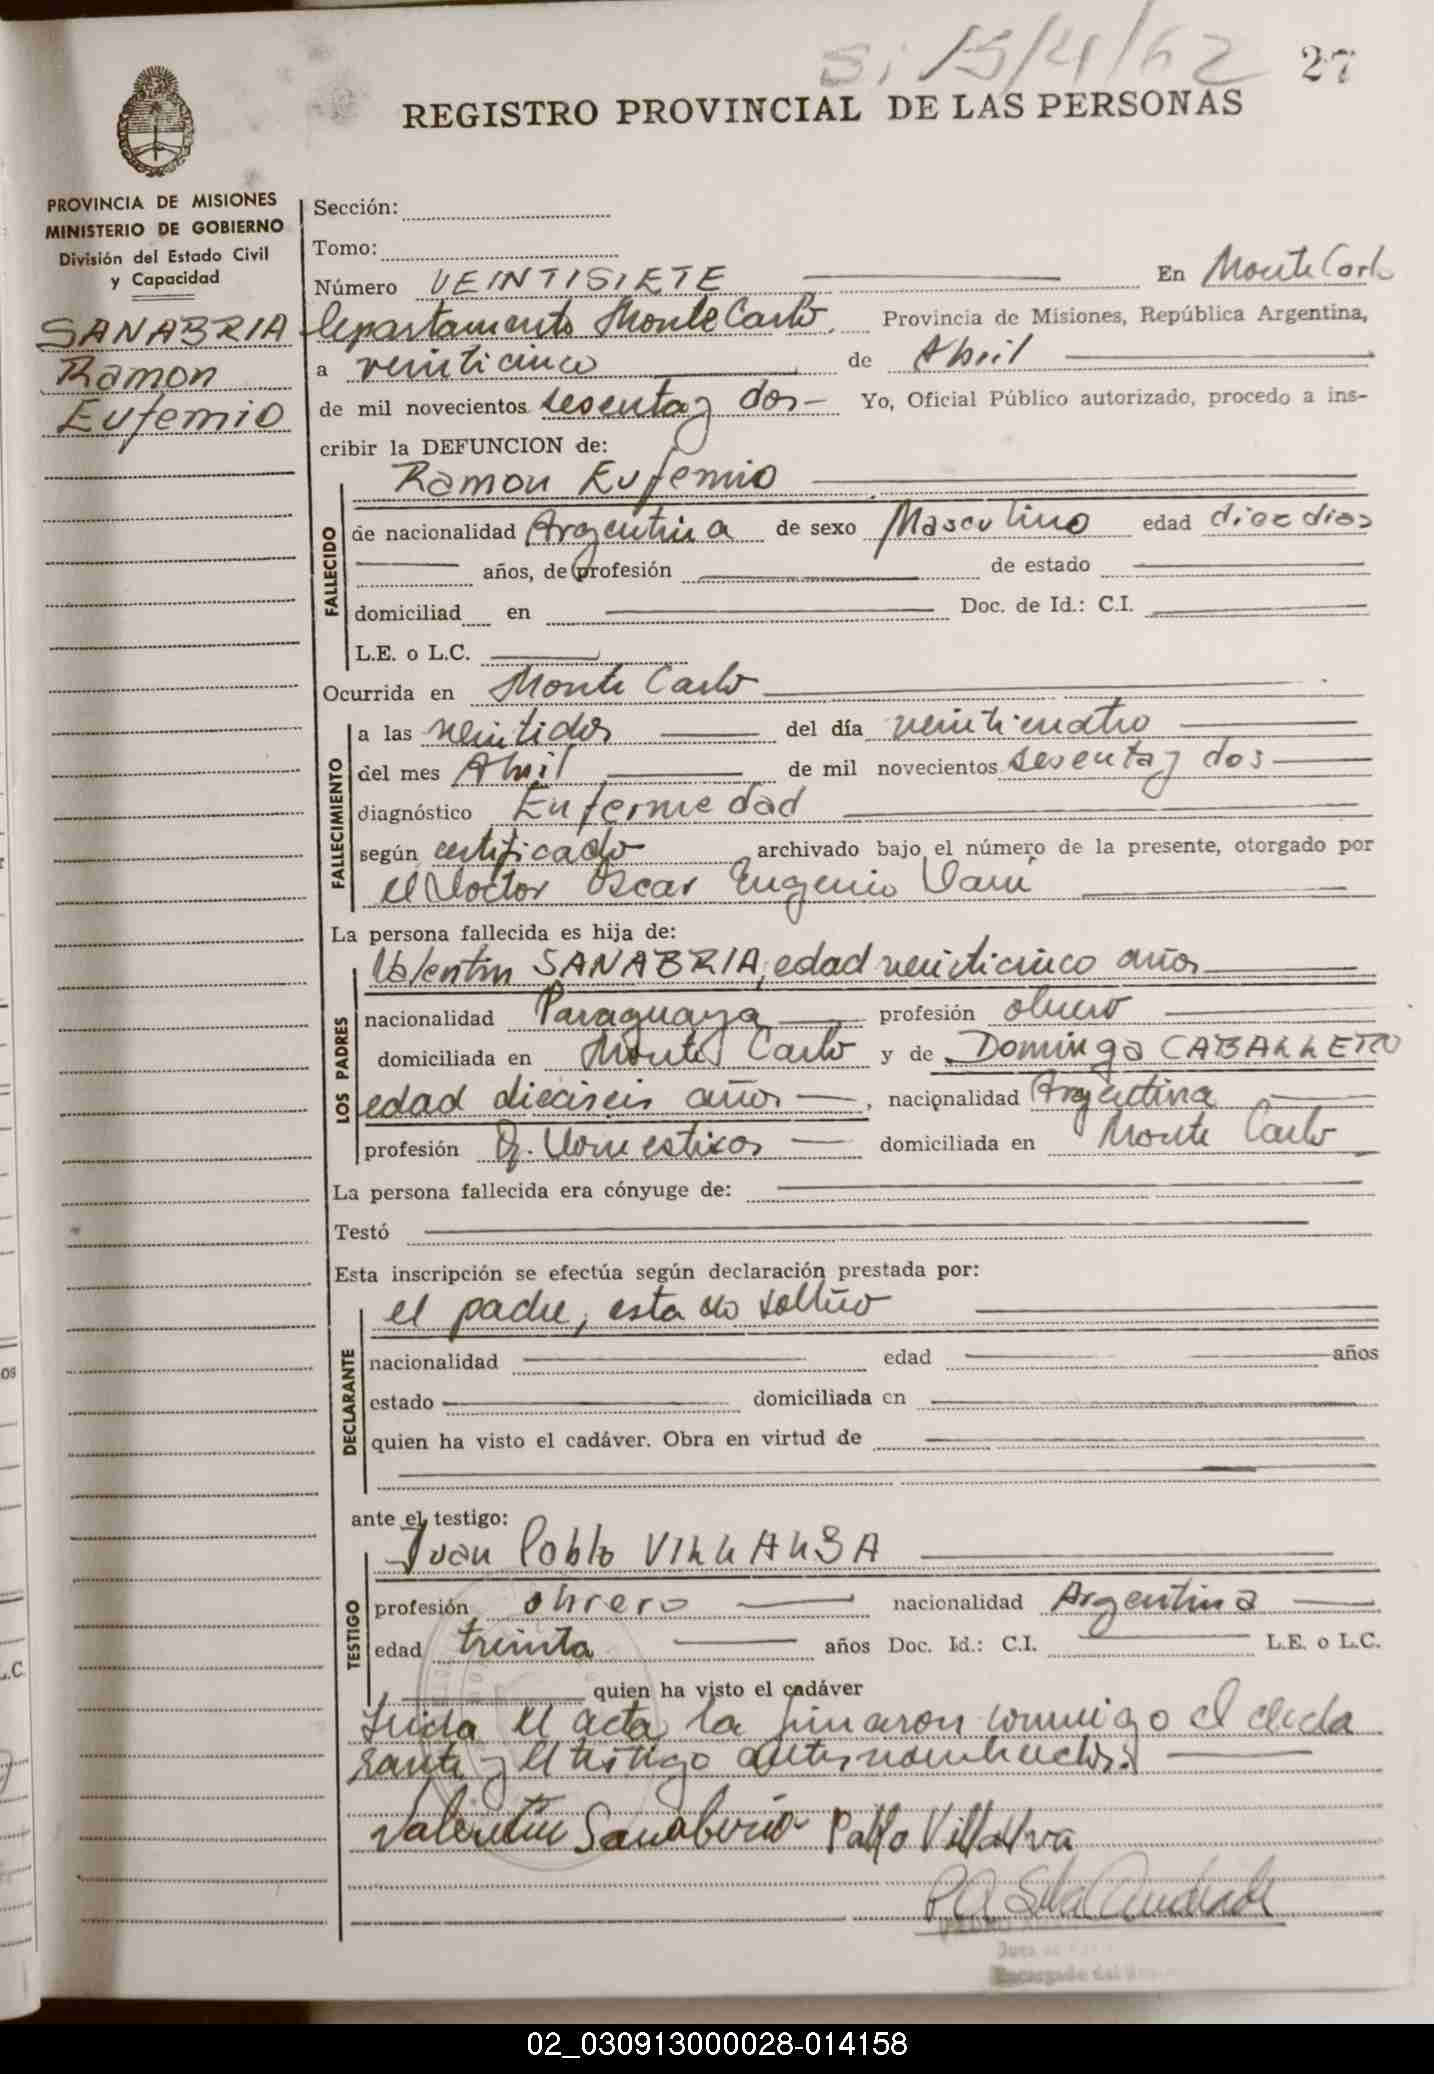 S. 15/4/62 27
REGISTRO PROVINCIAL DE LAS PERSONAS
PROVINCIA DE MISIONES
MINISTERIO DE GOBIERNO
División del Estado Civil
y Capacidad
SANABRIA
Ramon
Eufemio
Sección:
Tomo:
Número VEINTISIETE En Monte Carlo
Departamento Monte Carlo, Provincia de Misiones, República Argentina,
a veinticinco de Abril
de mil novecientos sesenta y dos Yo, Oficial Público autorizado, procedo a ins-
cribir la DEFUNCION de:
Ramon Eufemio
FALLECIDO
de nacionalidad Argentina de sexo Masculino edad diez dias
años, de profesión de estado
domiciliad en Doc. de Id.: C.I.
L.E. o L.C.
Ocurrida en Monte Carlo
FALLECIMIENTO
a las veintidos del día veinticuatro
del mes Abril de mil novecientos sesenta y dos
diagnóstico Enfermedad
según certificado archivado bajo el número de la presente, otorgado por
el Doctor Oscar Eugenio
La persona fallecida es hija de:
LOS PADRES
Valentin SANABRIA, edad veinticinco años
nacionalidad Paraguaya profesión obrero
domiciliada en Monte Carlo y de Dominga CABALLERO
edad dieciseis años, nacionalidad Argentina
profesión Q. Domesticos domiciliada en Monte Carlo
La persona fallecida era cónyuge de:
Testó
Esta inscripción se efectúa según declaración prestada por:
DECLARANTE
el padre, estado soltero
nacionalidad edad años
estado domiciliada en
quien ha visto el cadáver. Obra en virtud de
ante el testigo:
TESTIGO
Juan Pablo VILLALBA
profesión obrero nacionalidad Argentina
edad treinta años Doc. Id.: C.I. L.E. o L.C.
quien ha visto el cadáver
Leida el acta, la firmaron conmigo el decla
rante y el testigo antes nombrados.
Valentin Sanabria Pablo Villalva
02_030913000028-014158